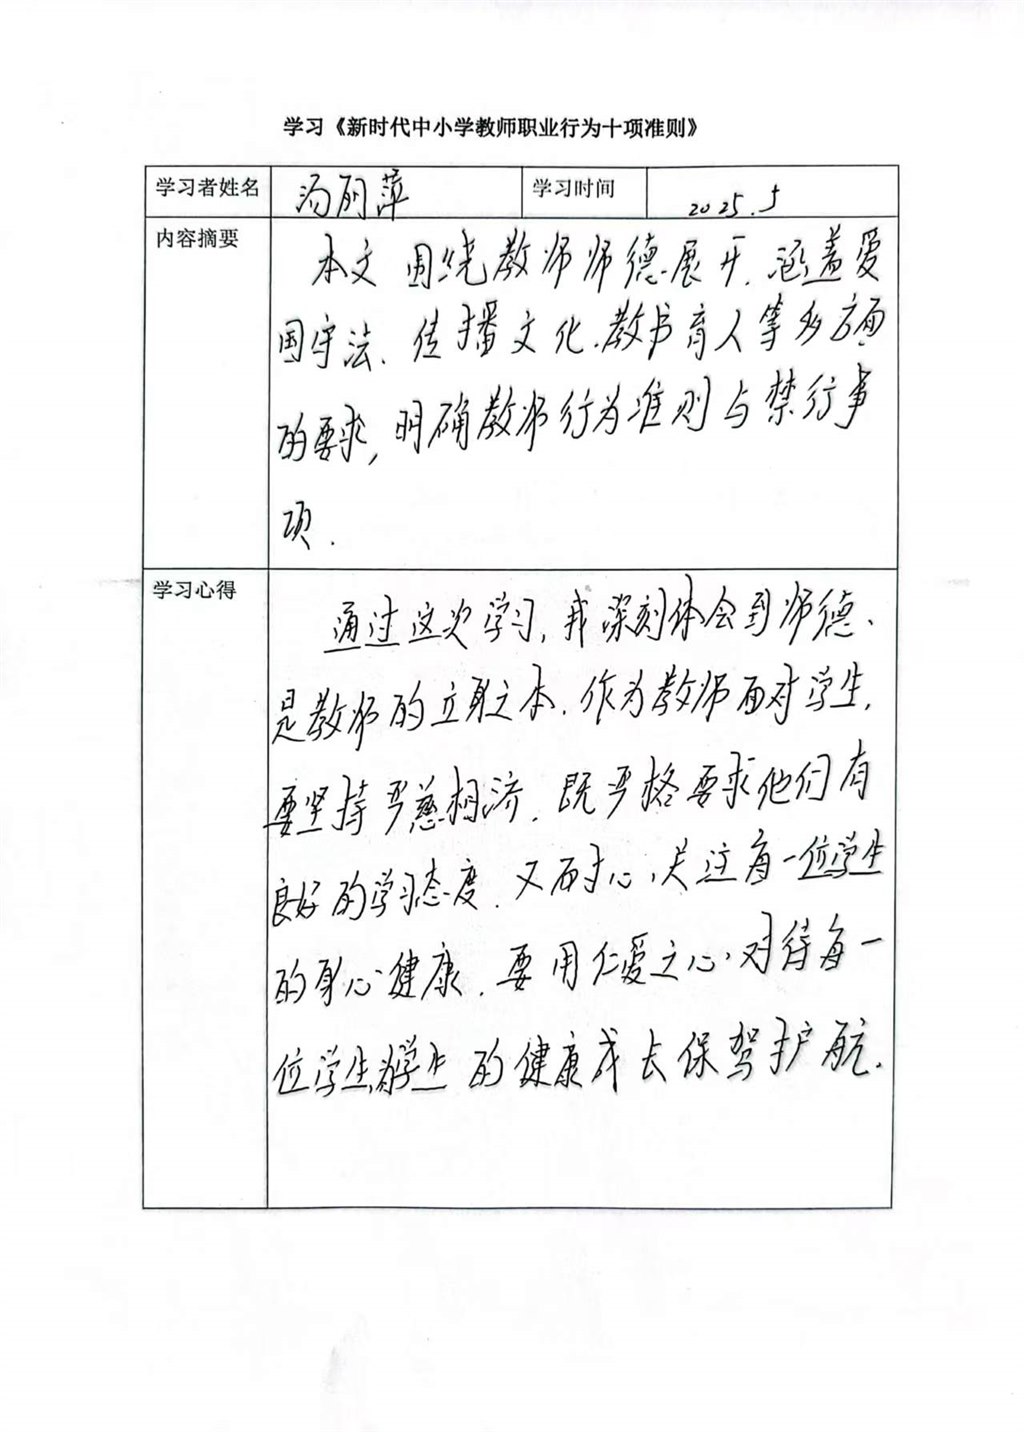 学习《新时代中小学教师职业行为十项准则》
学习者姓名 汤丽萍 学习时间 2025.5
内容摘要
本文围绕教师师德展开,涵盖爱
国守法、传播文化、教书育人等多方面
的要求,明确教师行为准则与禁行事
项.
学习心得
通过这次学习,我深刻体会到师德、
是教师的立身之本.作为教师面对学生,
要坚持严慈相济.既严格要求他们有
良好的学习态度.又耐心关注每一位学生
的身心健康.要用仁爱之心对待每一
位学生,为学生的健康成长保驾护航.